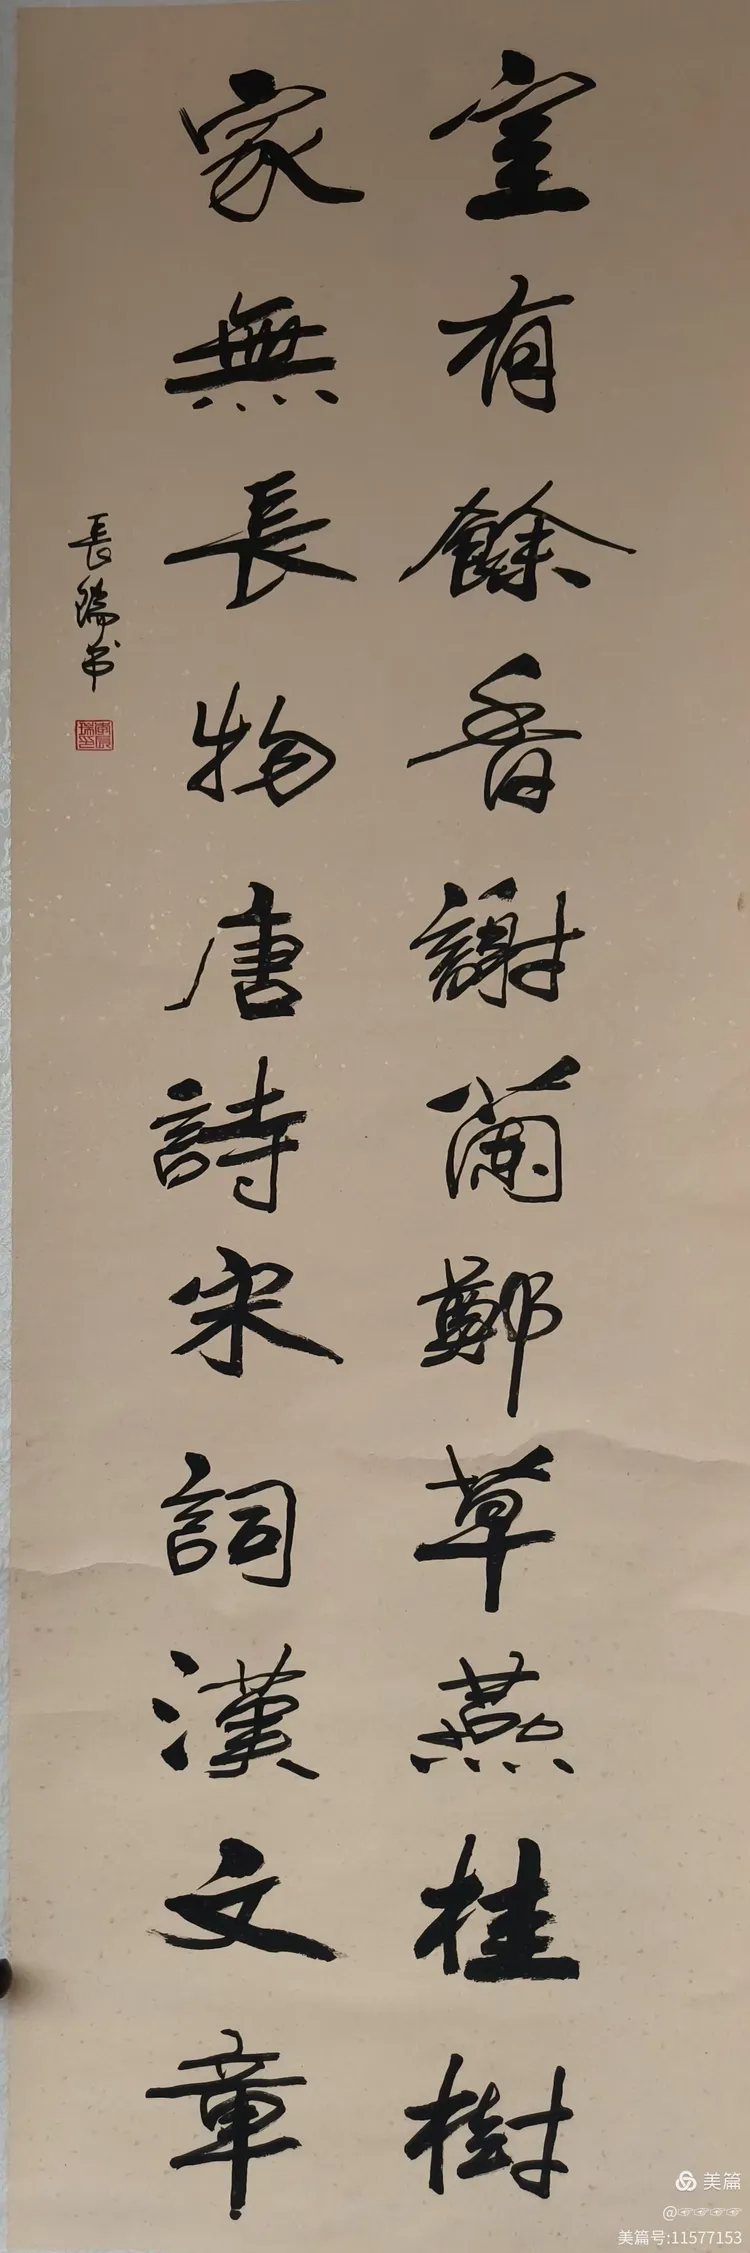 室有餘香謝蘭鄭草燕桂樹
家無長物唐詩宋詞漢文章
長瑞书
美篇
@☜☜☜☜
美篇号:11577153